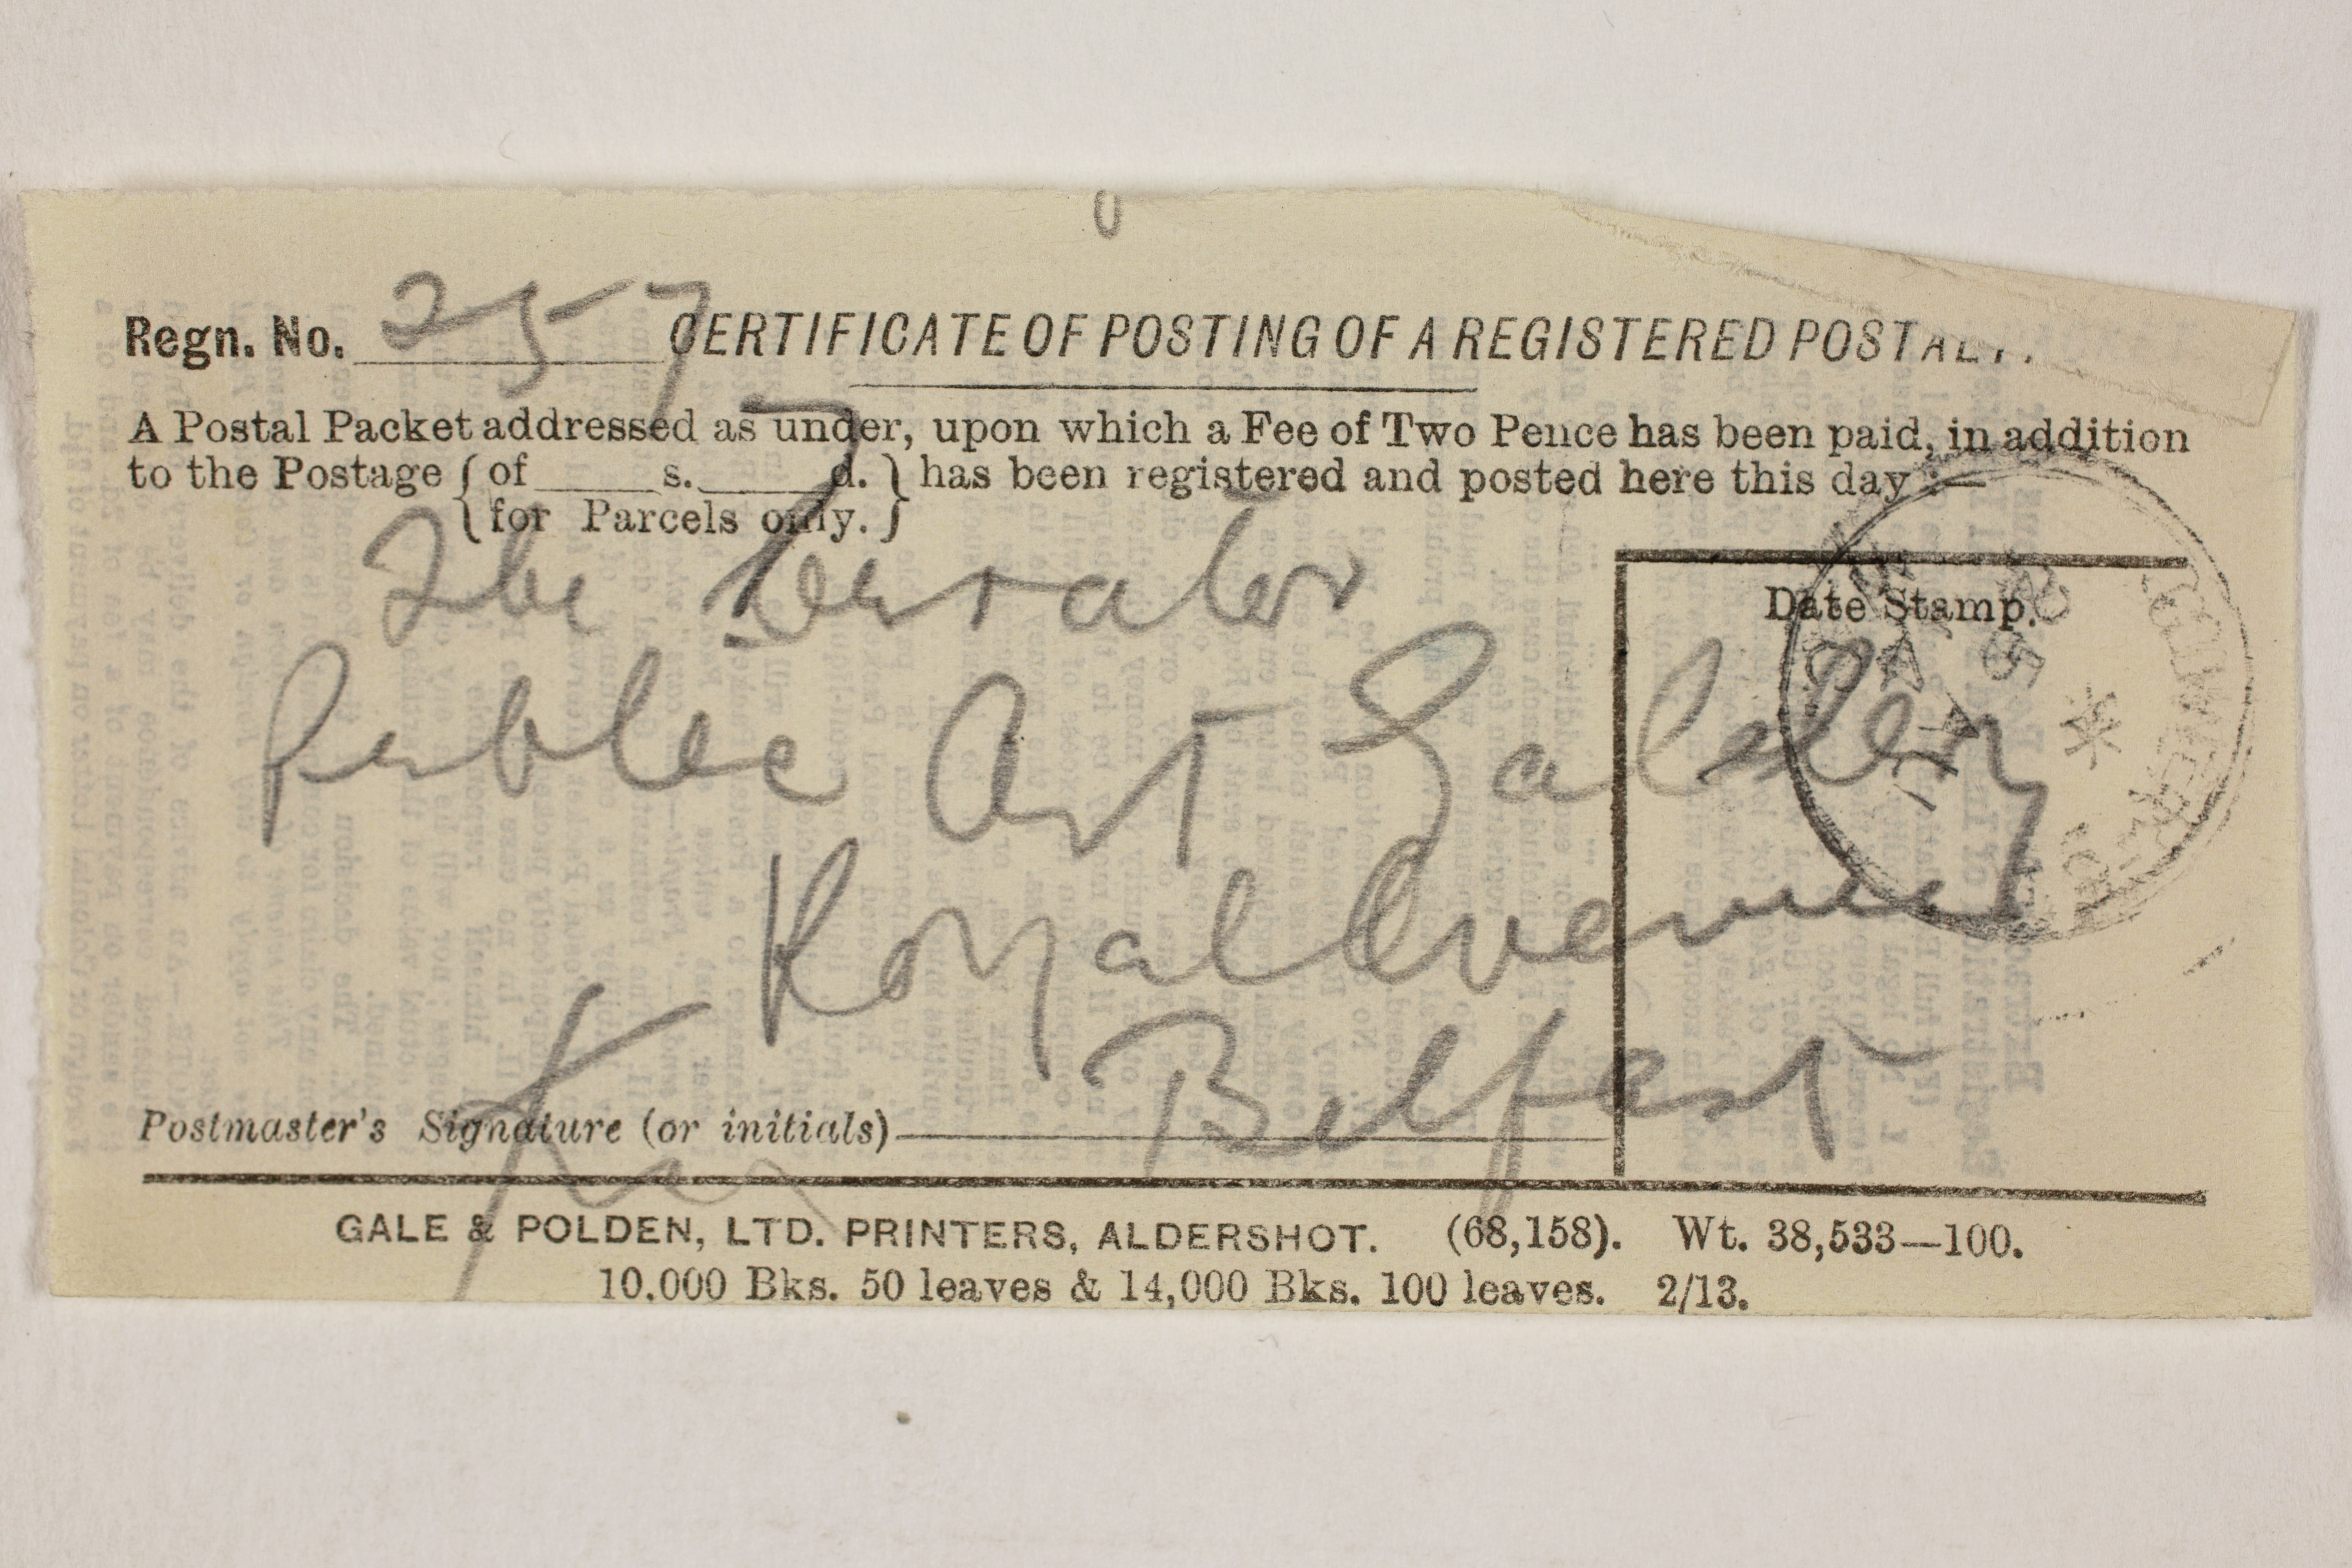 Regn. No. 257 CERTIFICATE OF POSTING OF A REGISTERED POSTAL
A Postal Packet addressed as under, upon which a Fee of Two Pence has been paid, in addition
to the Postage { of ____ s. ____ d. } has been registered and posted here this day :—
{ for Parcels only. }
The Curator
Date Stamp.
Public Art Gallery
Royal Avenue
Belfast
Postmaster's Signature (or initials)
GALE & POLDEN, LTD. PRINTERS, ALDERSHOT. (68,158). Wt. 38,533—100.
10,000 Bks. 50 leaves & 14,000 Bks. 100 leaves. 2/13.